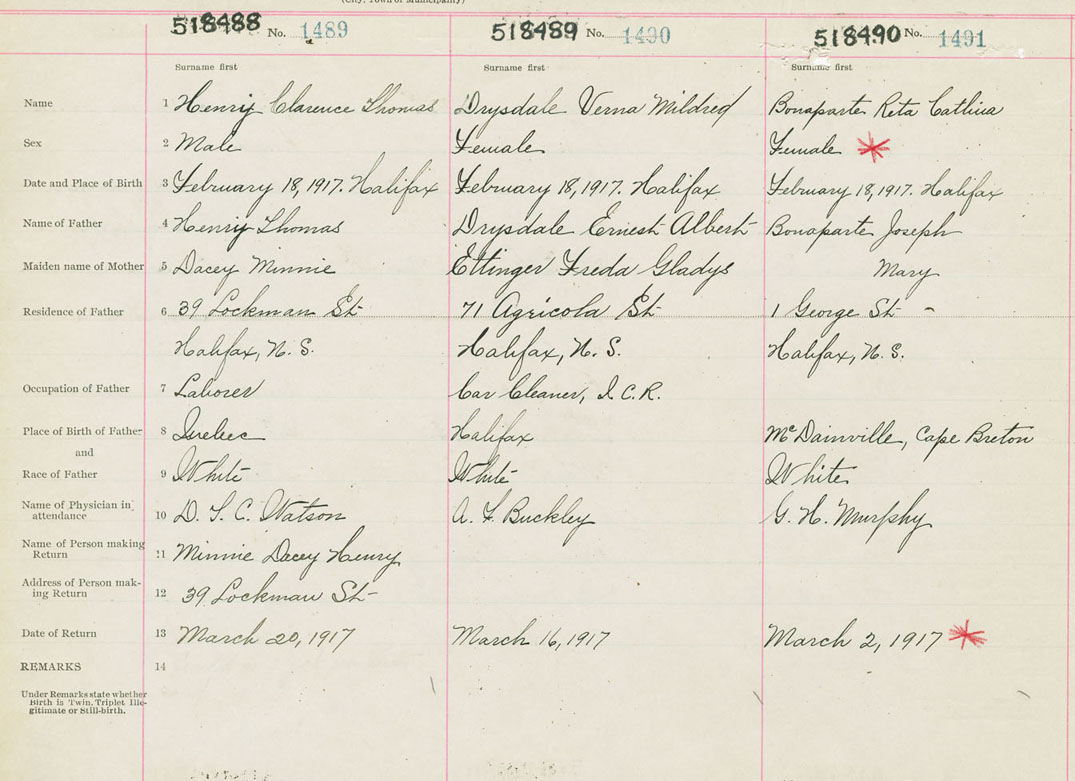 (City, Town or Municipality)
518488 No. 1489 518489 No. 1490 518490 No. 1491
Surname first Surname first Surname first
Name 1 Henry Clarence Thomas Drysdale Verna Mildred Bonaparte Reta Cathina
Sex 2 Male Female Female
Date and Place of Birth 3 February 18, 1917. Halifax February 18, 1917. Halifax February 18, 1917. Halifax
Name of Father 4 Henry Thomas Drysdale Ernest Albert Bonaparte Joseph
Maiden name of Mother 5 Dacey Minnie Ettinger Freda Gladys Mary
Residence of Father 6 39 Lockman St 71 Agricola St 1 George St -
Halifax, N. S. Halifax, N. S. Halifax, N. S.
Occupation of Father 7 Laborer Car Cleaner, I. C. R.
Place of Birth of Father 8 Quebec Halifax McDainville, Cape Breton
and
Race of Father 9 White White White
Name of Physician in
attendance 10 D. T. C. Watson A. F. Buckley G. H. Murphy
Name of Person making
Return 11 Minnie Dacey Henry
Address of Person mak-
ing Return 12 39 Lockman St
Date of Return 13 March 20, 1917 March 16, 1917 March 2, 1917
REMARKS 14
Under Remarks state whether
Birth is Twin, Triplet Ille-
gitimate or Still-birth.